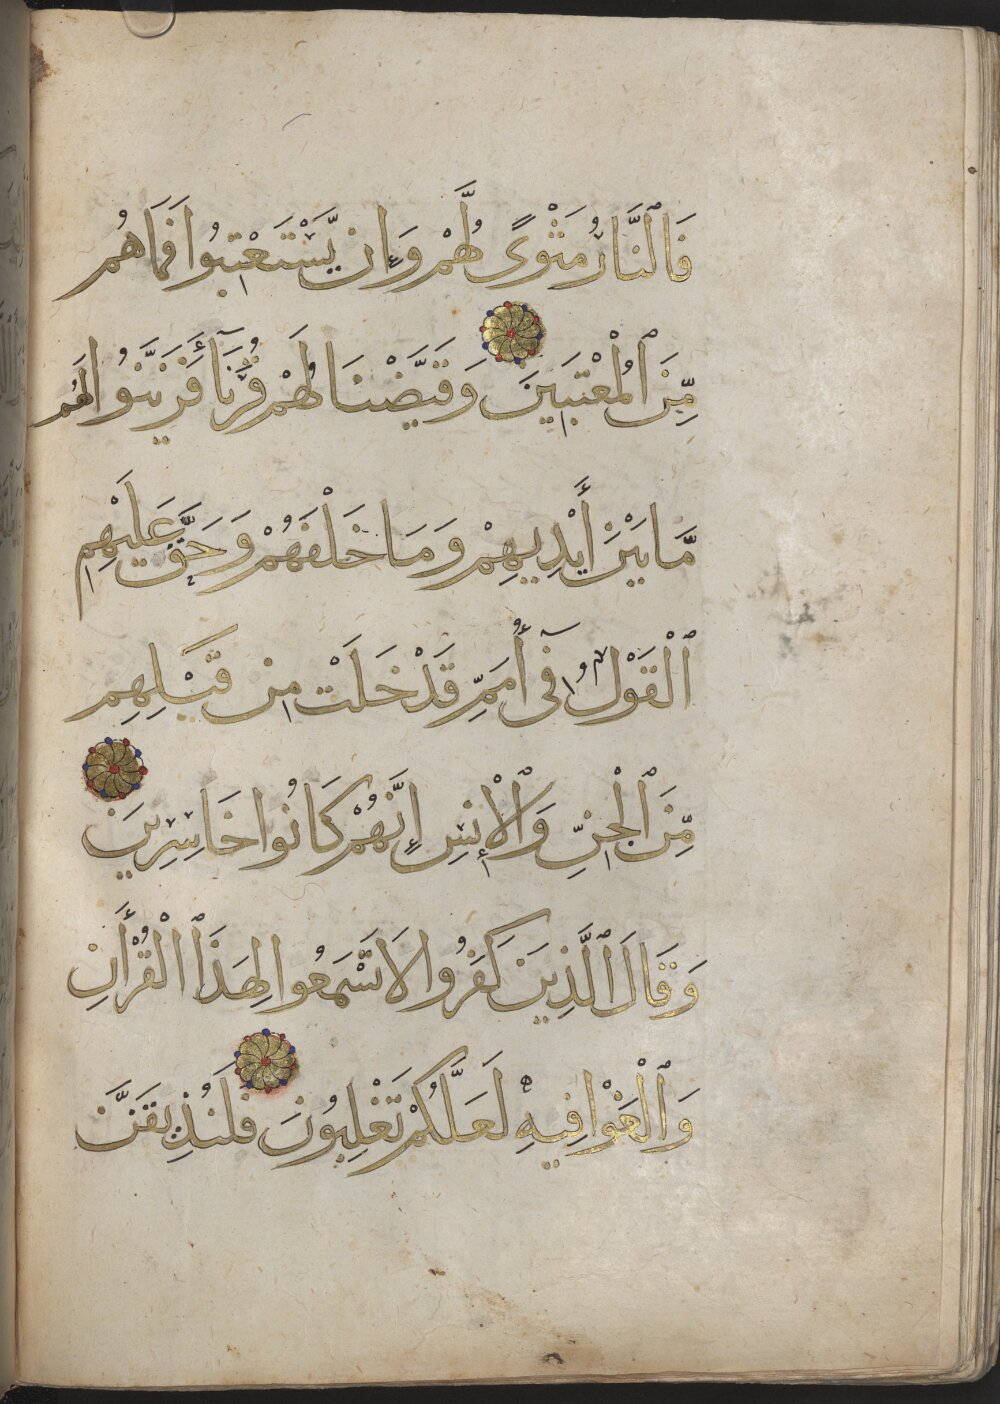 فَالنَّارُ مَثْوًى لَّهُمْ وَإِن يَّسْتَعْتِبُوا فَمَا هُم
مِّنَ ٱلْمُعْتَبِينَ وَقَيَّضْنَا لَهُمْ قُرَنَآءَ فَزَيَّنُوا لَهُم
مَّا بَيْنَ أَيْدِيهِمْ وَمَا خَلْفَهُمْ وَحَقَّ عَلَيْهِم
ٱلْقَوْلُ فِىٓ أُمَمٍ قَدْ خَلَتْ مِن قَبْلِهِم
مِّنَ ٱلْجِنِّ وَٱلْإِنسِ إِنَّهُمْ كَانُوا خَاسِرِينَ
وَقَالَ ٱلَّذِينَ كَفَرُوا لَا تَسْمَعُوا لِهَذَا ٱلْقُرْأَنِ
وَٱلْغَوْا فِيهِ لَعَلَّكُمْ تَغْلِبُونَ فَلَنُذِيقَنَّ